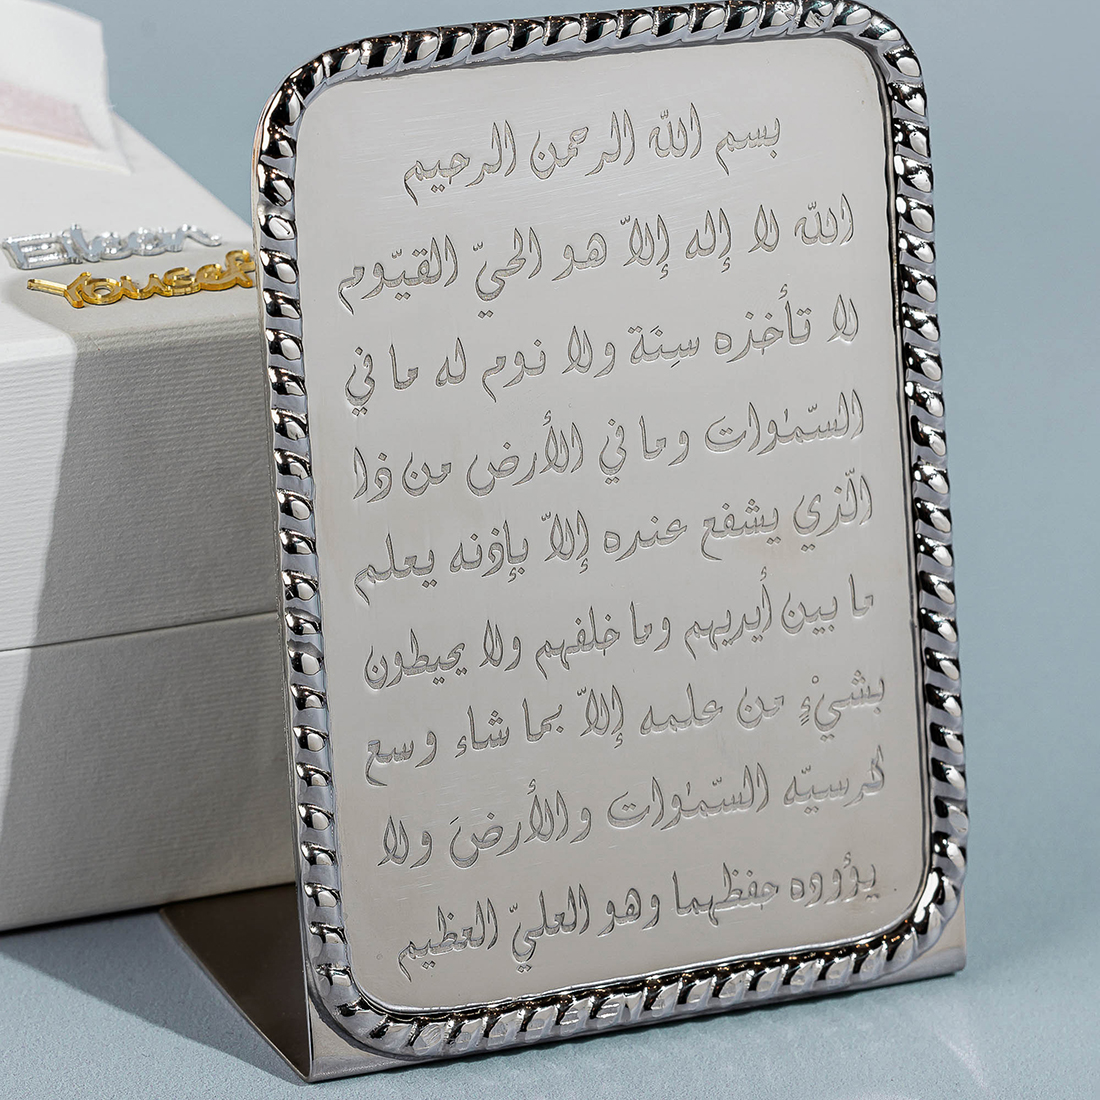 بسم اللّه الرحمن الرحيم
اللّه لا إله إلاّ هو الحيّ القيّوم
لا تأخذه سِنَة ولا نوم له ما في
السّمٰوات وما في الأرض من ذا
الّذي يشفع عنده إلاّ بإذنه يعلم
ما بين أيديهم وما خلفهم ولا يحيطون
بشيْءٍ من علمه إلاّ بما شاء وسع
كرسيّه السّمٰوات والأرضَ ولا
يؤوده حفظهما وهو العليّ العظيم
Eileen
Yousef